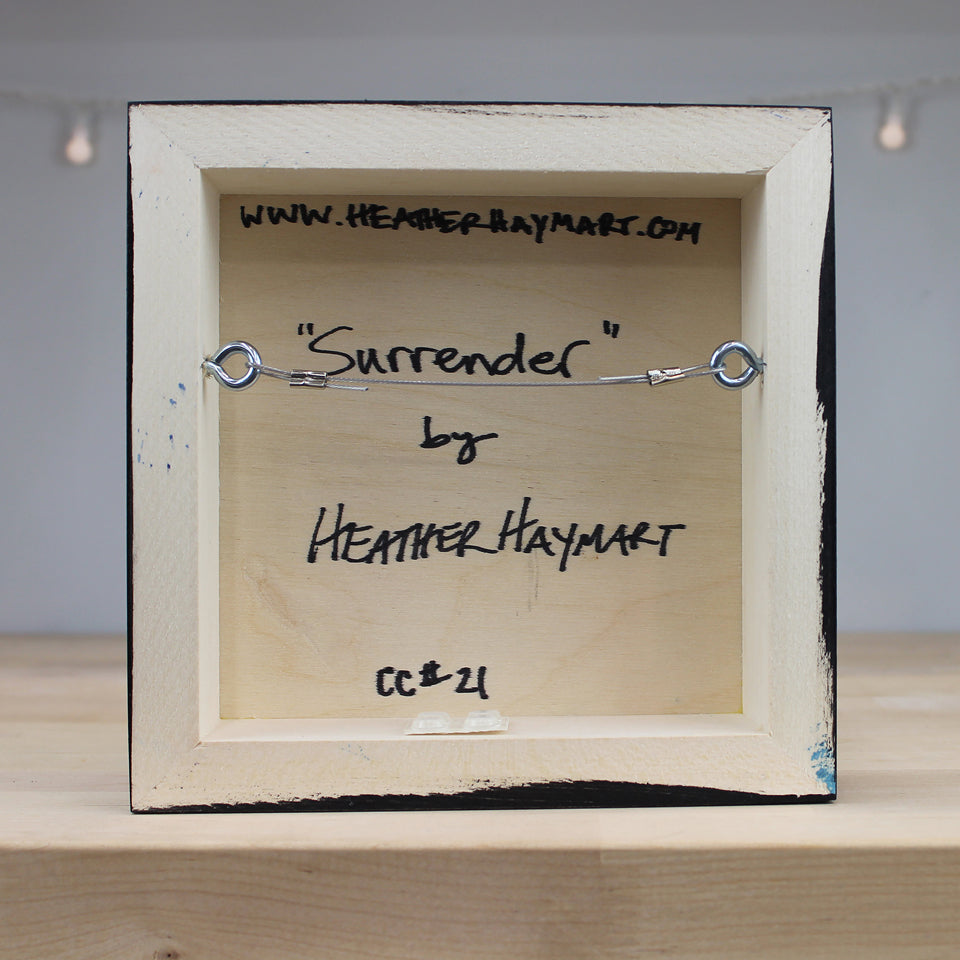 WWW.HEATHERHAYMART.COM
"Surrender"
by
HEATHER HAYMART
CC# 21